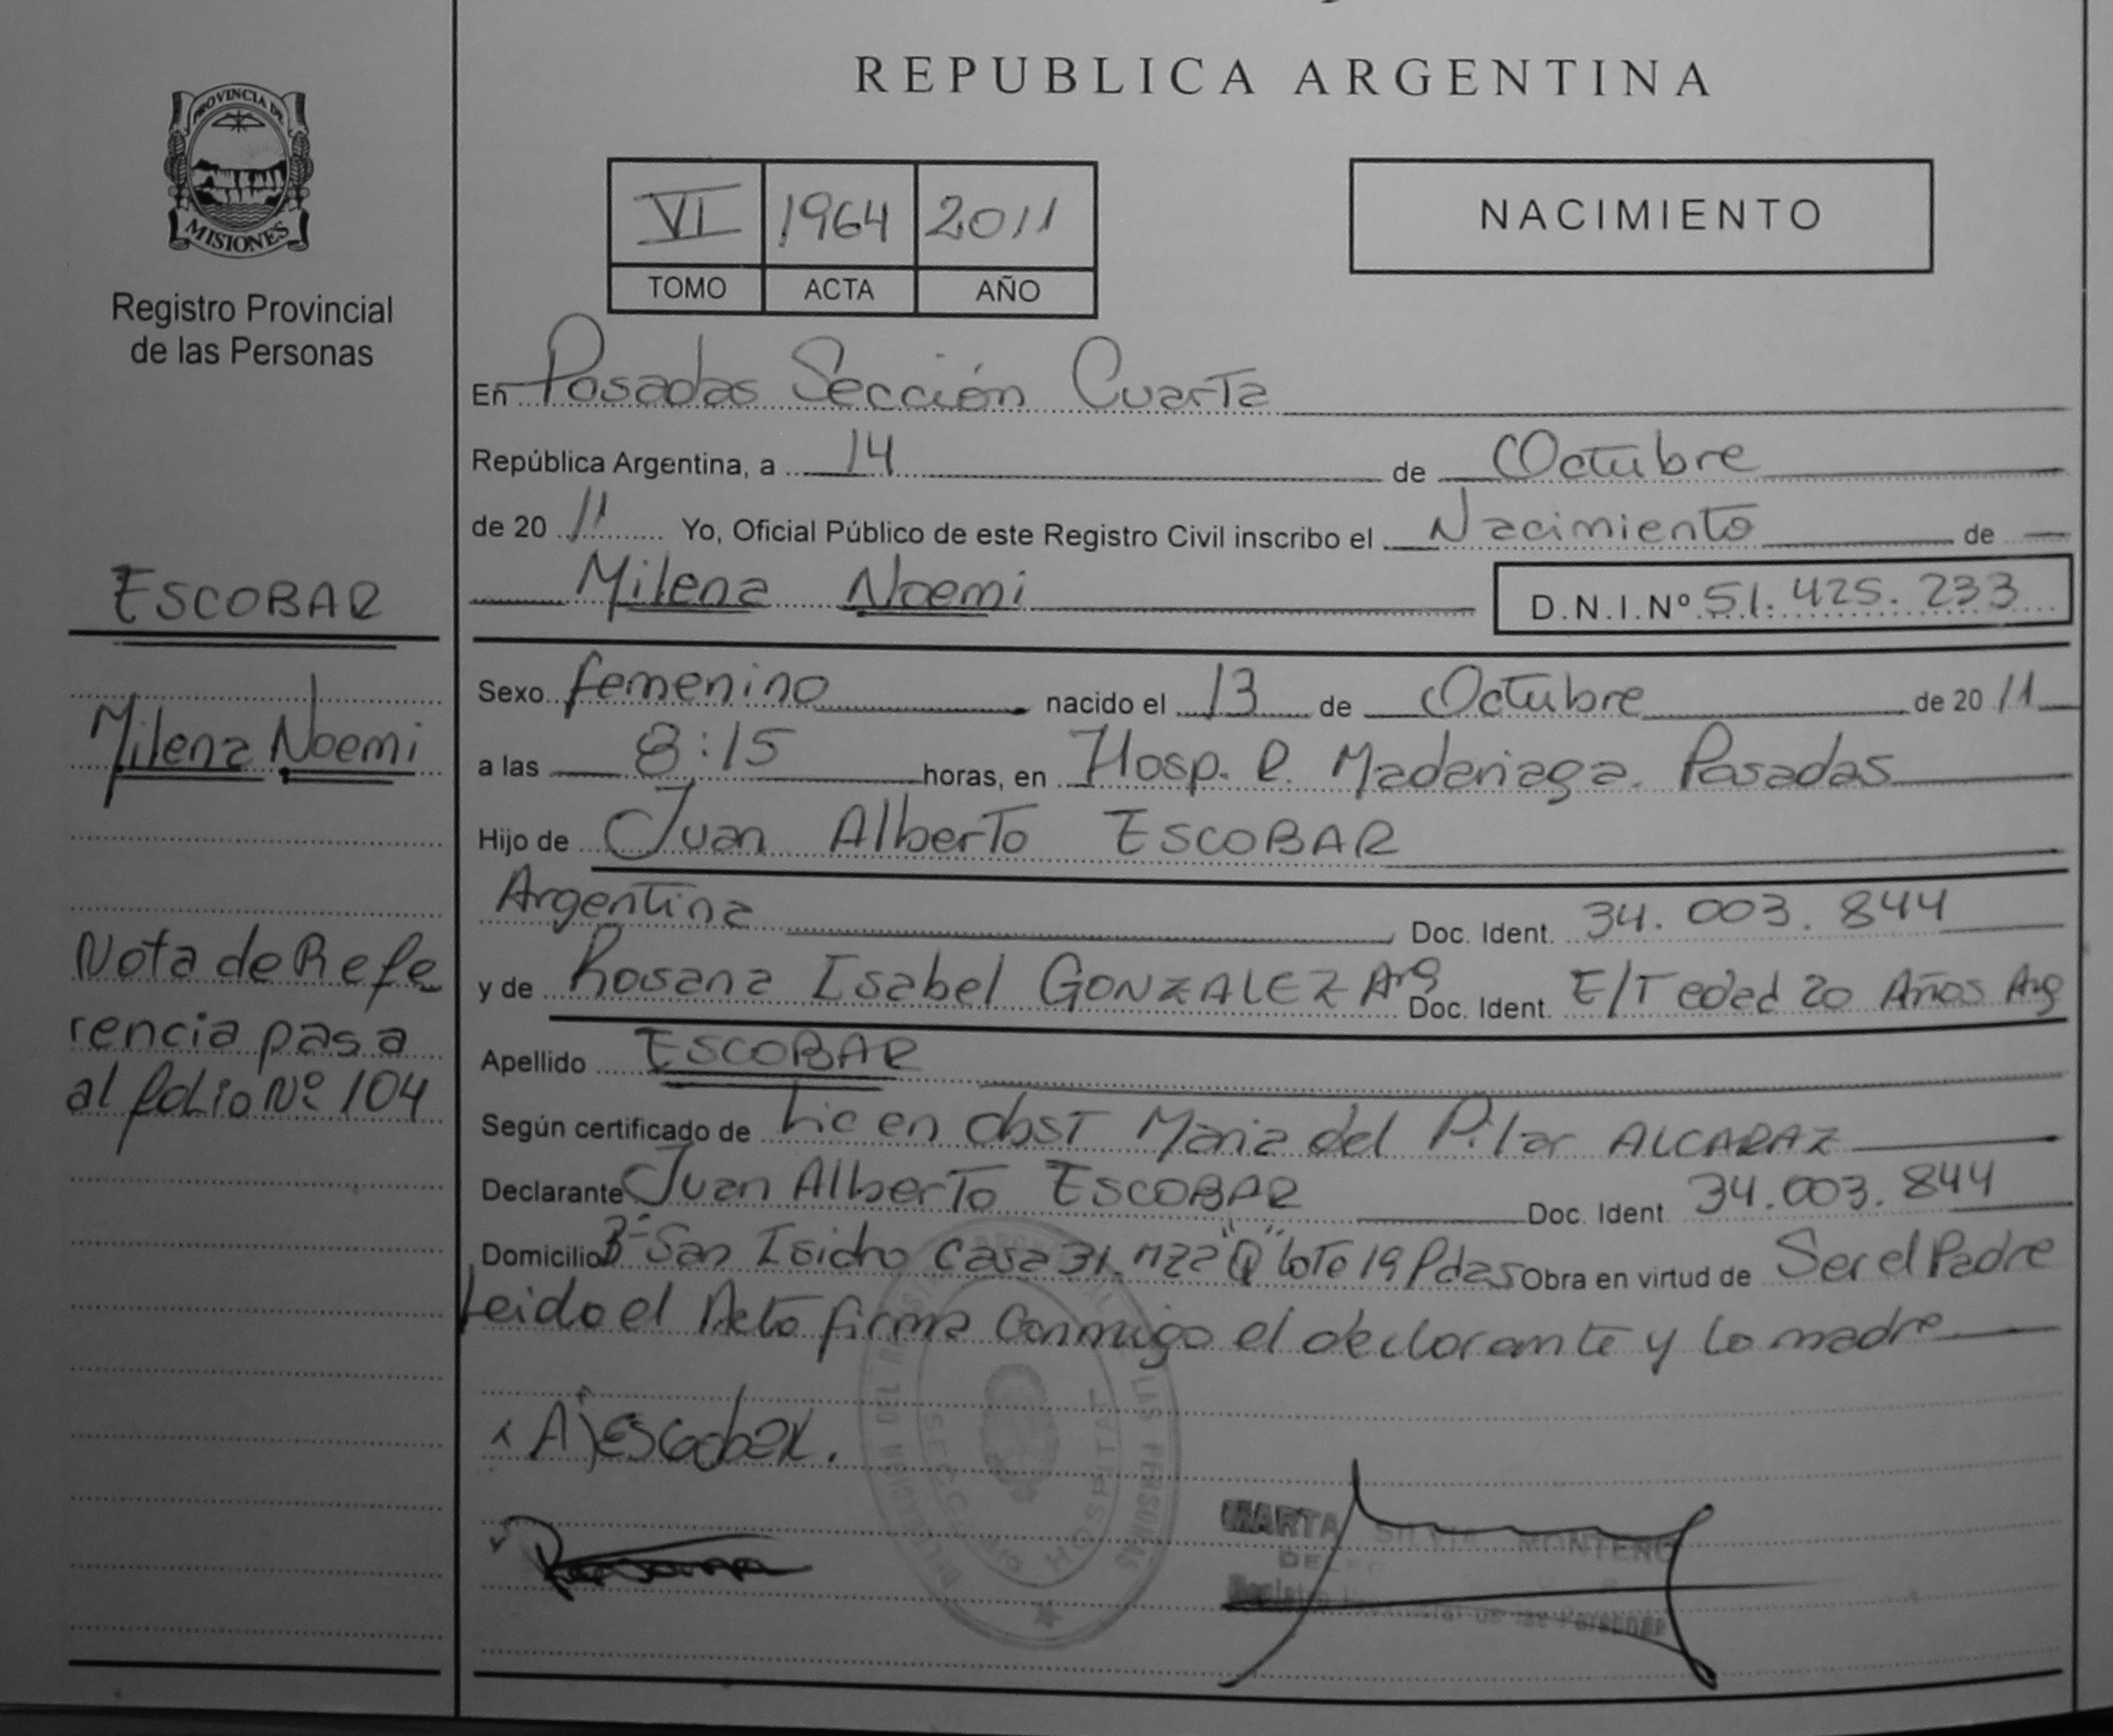 REPUBLICA ARGENTINA
PROVINCIA DE
MISIONES
Registro Provincial
de las Personas
VI 1964 2011
TOMO ACTA AÑO
NACIMIENTO
En Posadas Sección Cuarta
República Argentina, a 14 de Octubre
de 20 11 Yo, Oficial Público de este Registro Civil inscribo el Nacimiento de
Milena Noemi D.N.I.Nº 51.425.233
ESCOBAR
Milena Noemi
Nota de Refe
rencia pasa
al folio Nº 104
Sexo femenino nacido el 13 de Octubre de 20 11
a las 8:15 horas, en Hosp. R. Madariaga. Posadas
Hijo de Juan Alberto ESCOBAR
Argentina Doc. Ident. 34.003.844
y de Rosana Isabel GONZALEZ Arg Doc. Ident. E/T edad 20 Años Arg
Apellido ESCOBAR
Según certificado de Lic en Obst Maria del Pilar ALCARAZ
Declarante Juan Alberto ESCOBAR Doc. Ident 34.003.844
Domicilio Bº San Isidro Casa 31 mza "Q" lote 19 Pdas Obra en virtud de Ser el Padre
Leido el Acto firma Conmigo el declarante y la madre
A J Escobar.
MARTA SILVIA MONTERO
Registro Provincial de las Personas